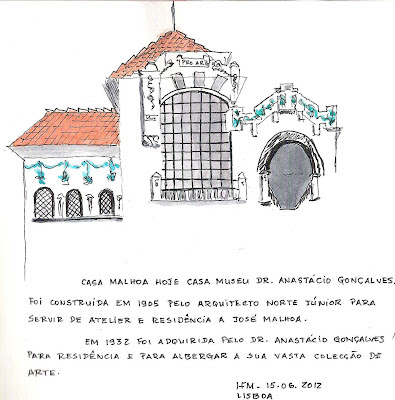 PRO ARTE
CASA MALHOA HOJE CASA MUSEU DR. ANASTÁCIO GONÇALVES.
FOI CONSTRUÍDA EM 1905 PELO ARQUITECTO NORTE JÚNIOR PARA
SERVIR DE ATELIER E RESIDÊNCIA A JOSÉ MALHOA.
EM 1932 FOI ADQUIRIDA PELO DR. ANASTÁCIO GONÇALVES
PARA RESIDÊNCIA E PARA ALBERGAR A SUA VASTA COLECÇÃO DE
ARTE.
HFM - 15.06.2012
LISBOA